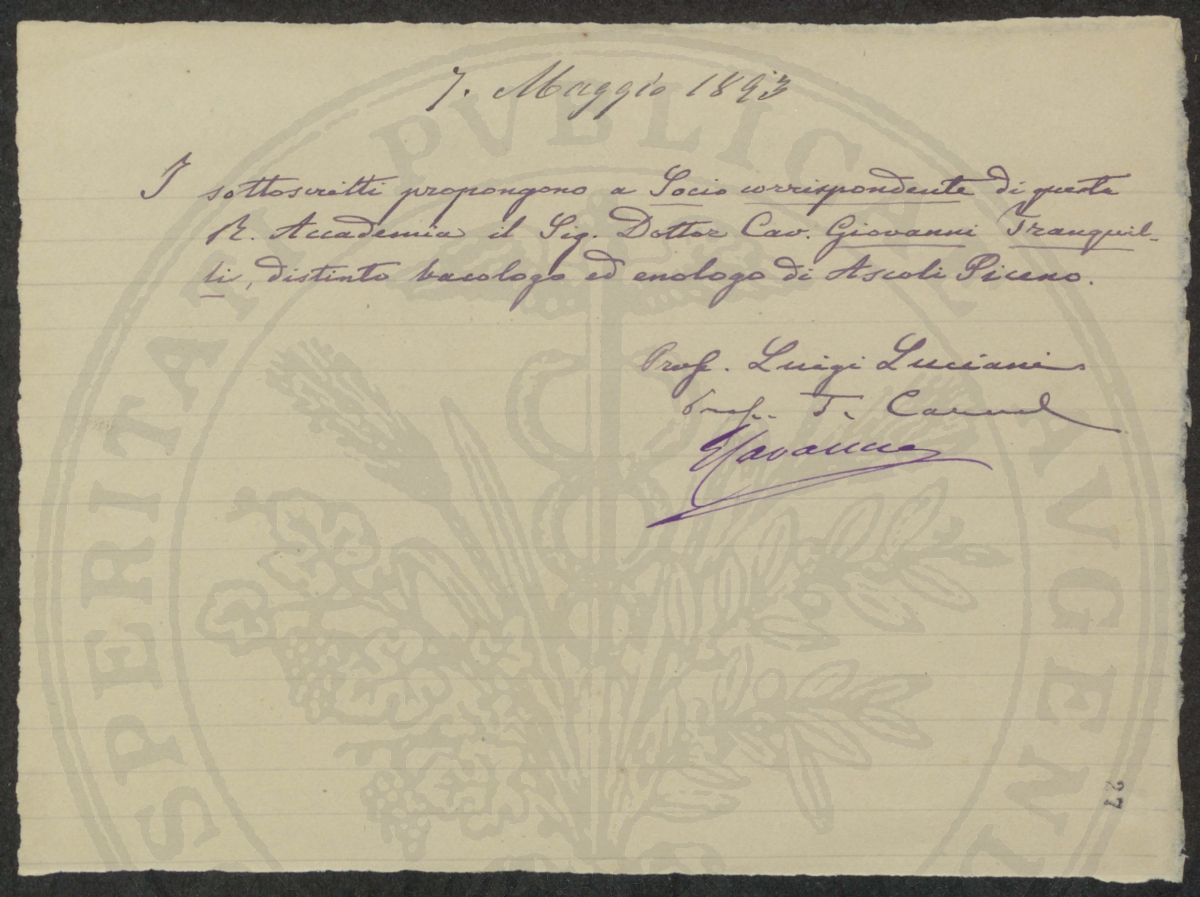 7. Maggio 1893
I sottoscritti propongono a Socio corrispondente di questa
R. Accademia il Sig. Dottor Cav. Giovanni Tranquil-
li, distinto bacologo ed enologo di Ascoli Piceno.
Prof. Luigi Luciani
Prof. T. Caruel
Cavanna
27
SPERITATI PVBLICAE AVGEN